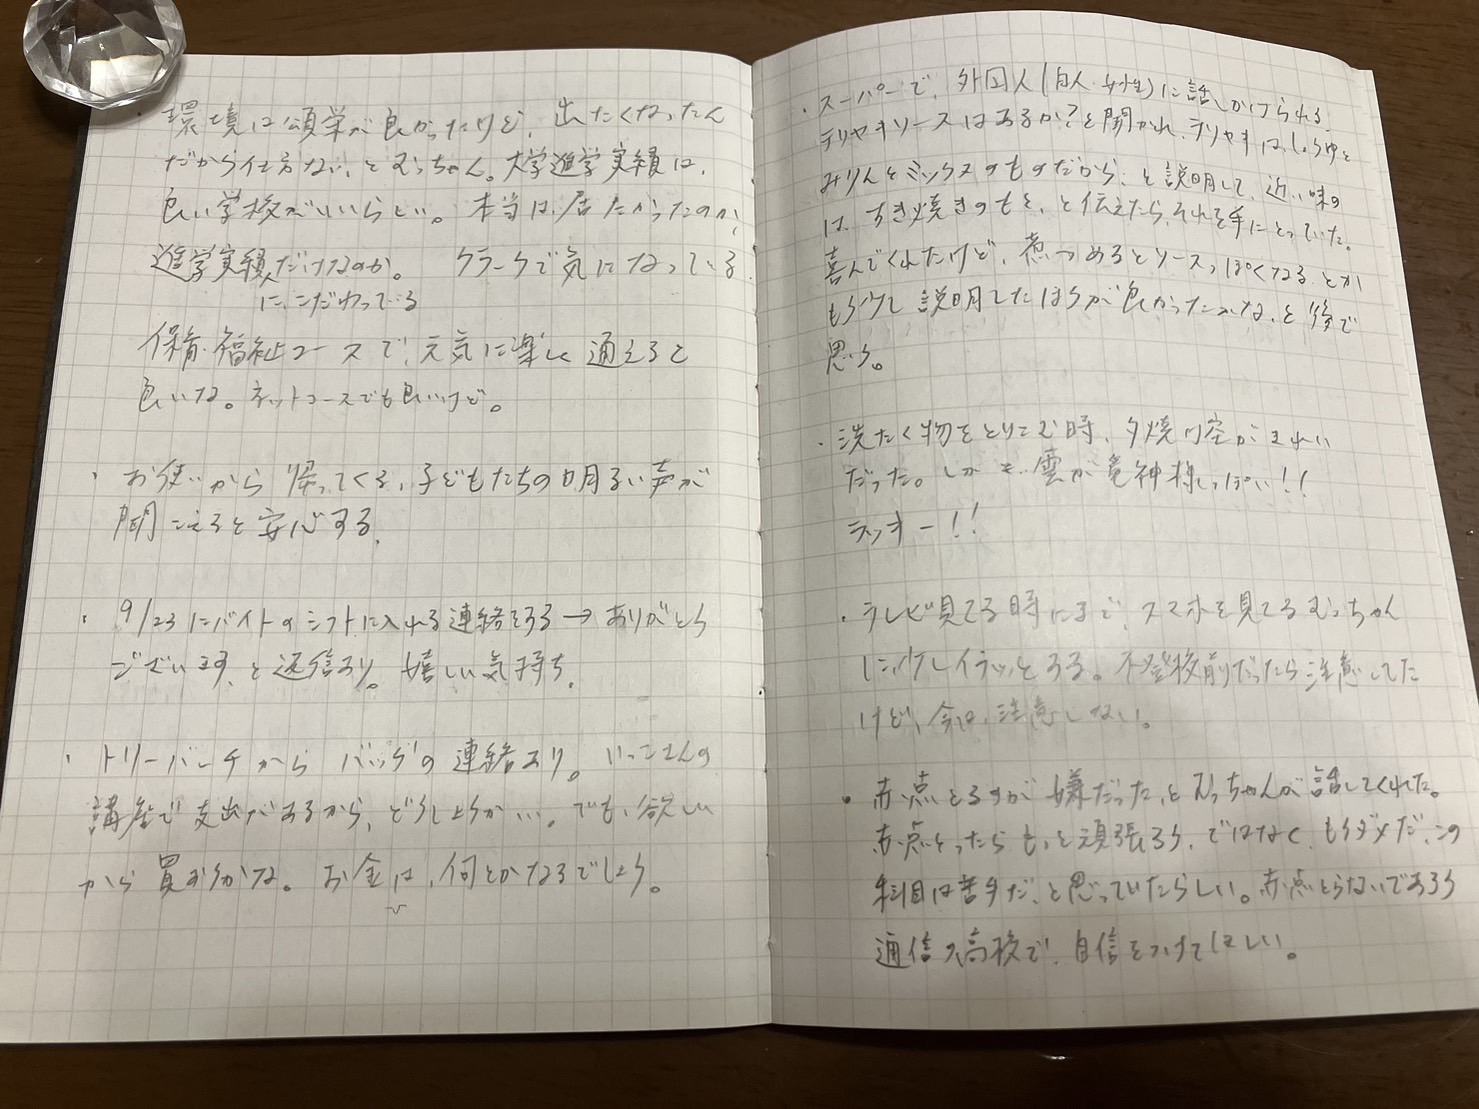 ・環境は頌栄が良かったけど、出たくなったん
だから仕方ない、とむっちゃん。大学進学実績は、
良い学校がいいらしい。本当は、居たかったのか、
進学実績だけなのか。 クラークで気になっている
にこだわっている
保育・福祉コースで、元気に楽しく通えると
良いな。ネットコースでも良いけど。
・お使いから帰ってくる、子どもたちの明るい声が
聞こえると安心する。
・9/23にバイトのシフトに入れる連絡をする→ありがとう
ございます、と返信あり。嬉しい気持ち。
・トリーバーチからバッグの連絡あり。いっこさんの
講座で支出があるから、どうしようか…。でも、欲しい
から買おうかな。お金は、何とかなるでしょう。
・スーパーで、外国人(白人・女性)に話しかけられる。
テリヤキソースはあるか?と聞かれ、テリヤキは、しょうゆと
みりんとミックスのものだから、と説明して、近い味の
は、すき焼きのもと、と伝えたら、それを手にとっていた。
喜んでくれたけど、煮つめるとソースっぽくなる、とか
もう少し説明したほうが良かったかな、と後で
思う。
・洗たく物をとりこむ時、夕焼け空がきれい
だった。しかも、雲が竜神様っぽい!!
ラッキー!!
・テレビ見てる時にまで、スマホを見てるむっちゃん
に少しイラッとする。不登校前だったら注意してた
けど、今は、注意しない。
・赤点とるのが嫌だった、とむっちゃんが話してくれた。
赤点とったらもっと頑張ろう、ではなく、もうダメだ、この
科目は苦手だ、と思っていたらしい。赤点とらないであろう
通信の高校で、自信をつけてほしい。